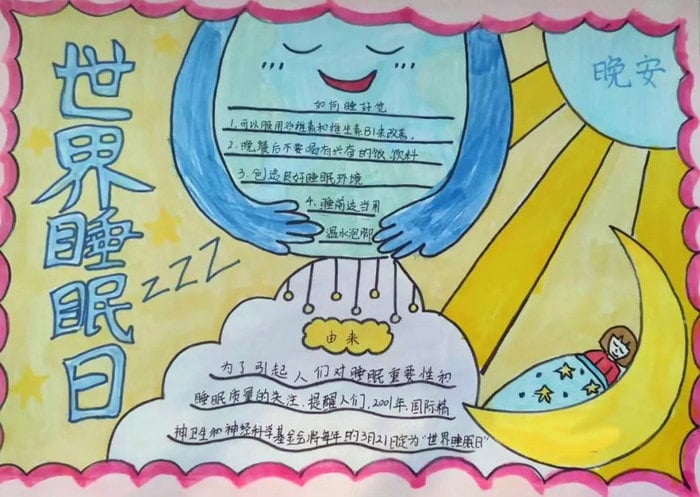 世界睡眠日
zzz
晚安
如何睡好觉
1.可以服用谷维素和维生素B1来改善。
2.晚餐后不要喝有兴奋的饭、饮料
3.创造良好睡眠环境
4.睡前适当用
温水泡脚
由来
为了引起人们对睡眠重要性和
睡眠质量的关注,提醒人们,2001年,国际精
神卫生和神经科学基金会将每年的3月21日定为“世界睡眠日”